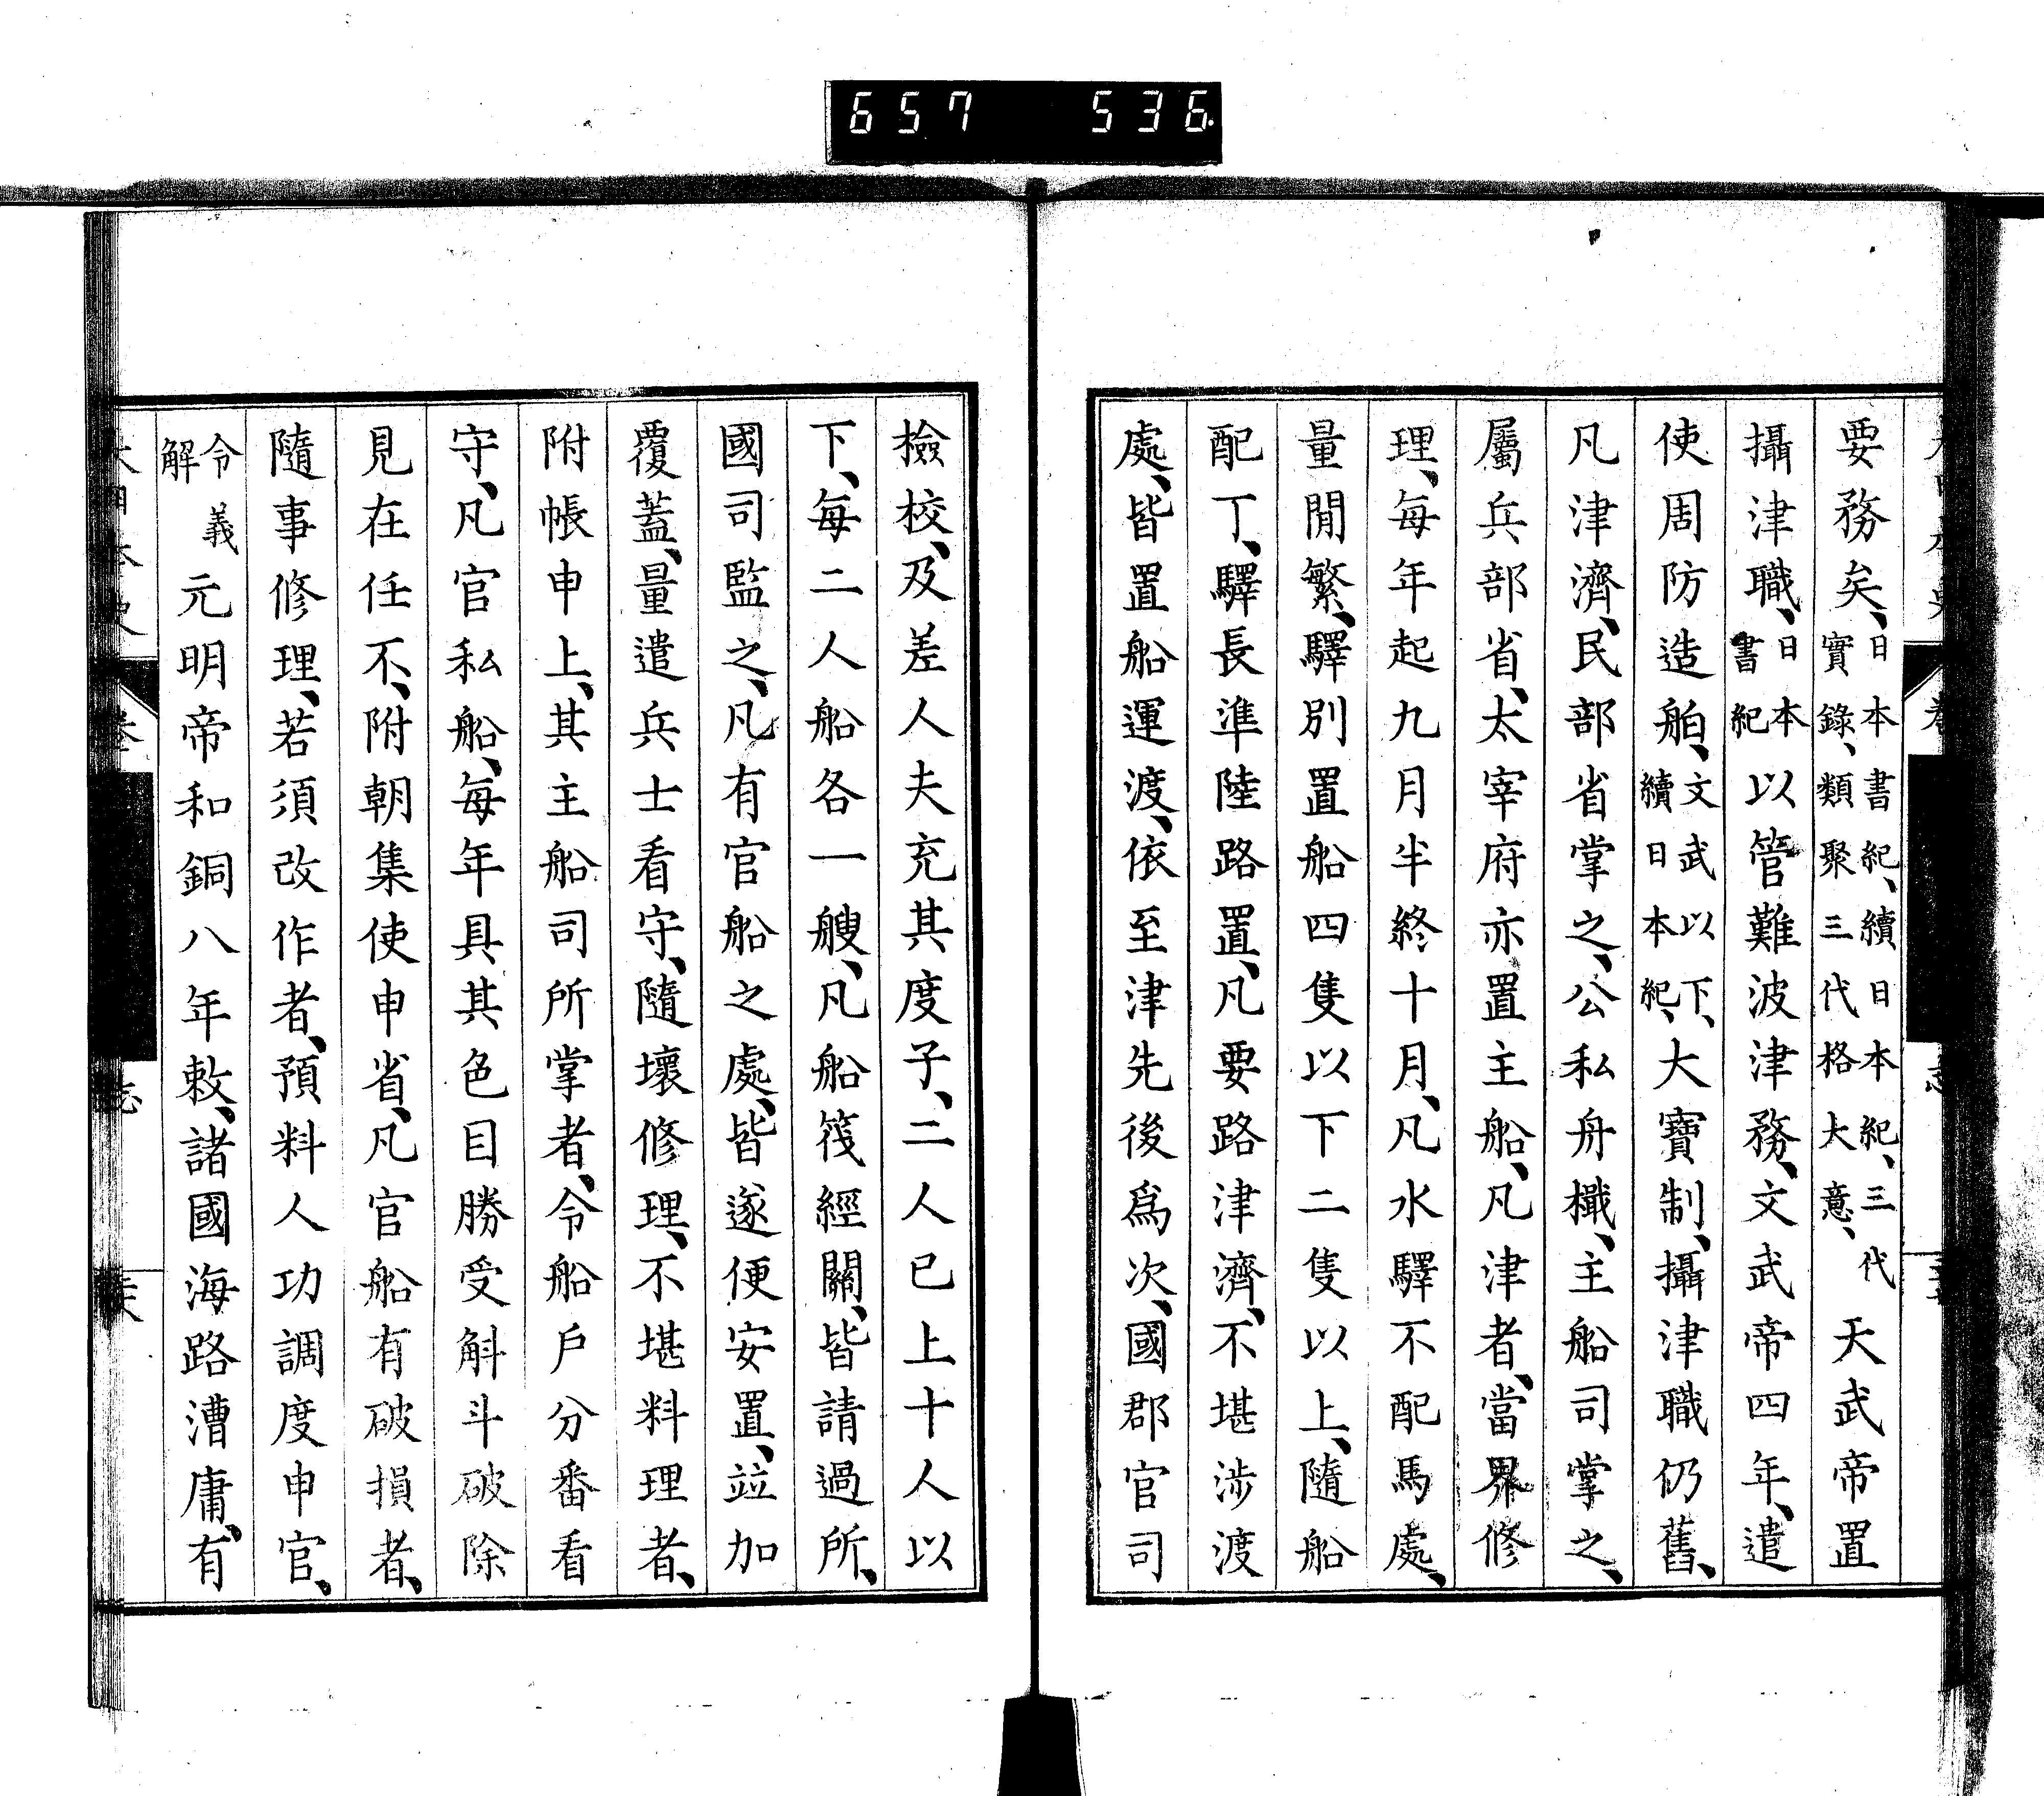 657 536
要務矣、日本書紀、續日本紀、三代實錄、類聚三代格大意、天武帝置
攝津職、日本書紀以管難波津務、文武帝四年、遣
使周防造舶、文武以下、續日本紀、大寶制、攝津職仍舊、
凡津濟、民部省掌之、公私舟檝、主船司掌之、
屬兵部省、太宰府亦置主船、凡津者、當界修
理、每年起九月半終十月、凡水驛不配馬處、
量閒繁、驛別置船四隻以下二隻以上、隨船
配丁、驛長準陸路置、凡要路津濟、不堪涉渡
處、皆置船運渡、依至津先後爲次、國郡官司
檢校、及差人夫充其度子、二人已上十人以
下、每二人船各一艘、凡船筏經關、皆請過所、
國司監之、凡有官船之處、皆逐便安置、竝加
覆蓋、量遣兵士看守、隨壞修理、不堪料理者、
附帳申上、其主船司所掌者、令船戶分番看
守、凡官私船、每年具其色目勝受斛斗破除
見在任不、附朝集使申省、凡官船有破損者、
隨事修理、若須改作者、預料人功調度申官、
令義解元明帝和銅八年敕、諸國海路漕庸、有